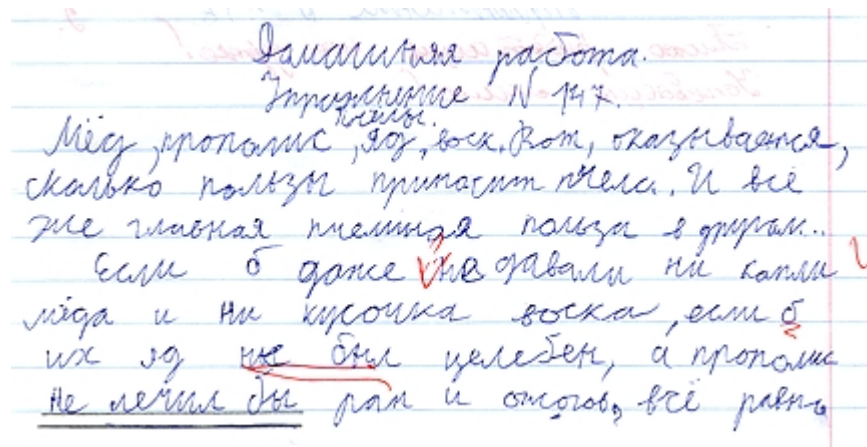 Домашняя работа.
Упражнение N 147.
пчелы.
Мёд, прополис, яд, воск. Вот, оказывается,
сколько пользы приносит пчела. И всё
же главная пчелиная польза в другом...
Если б даже не давали ни капли
мёда и ни кусочка воска, если б
их яд не был целебен, а прополис
не лечил бы ран и ожогов, всё равно